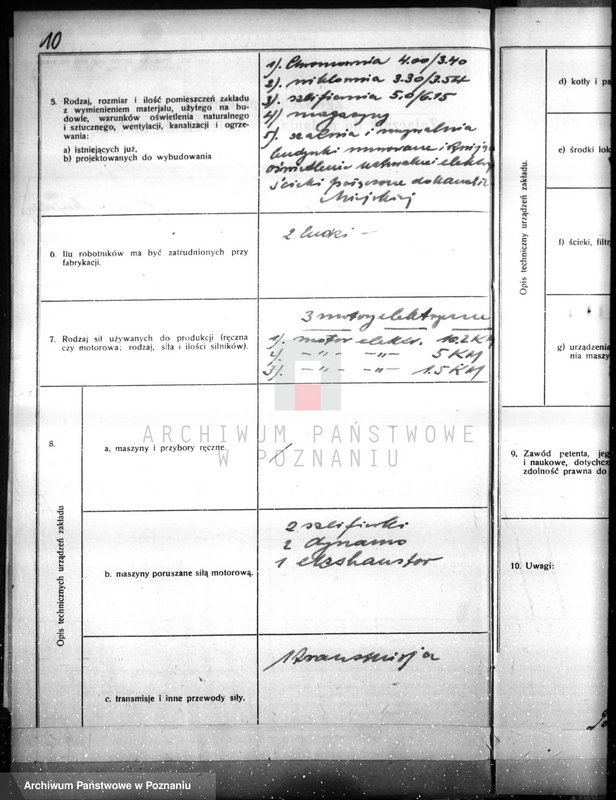 10
5. Rodzaj, rozmiar i ilość pomieszczeń zakładu
z wymienieniem materjału, użytego na bu-
dowle, warunków oświetlenia naturalnego
i sztucznego, wentylacji, kanalizacji i ogrze-
wania:
a) istniejących już,
b) projektowanych do wybudowania
1). Chromownia 4.00/3.40
2). niklownia 3.30/3.54
3). szlifiernia 5.0/6.15
4) magazyny
5). szatnia i umywalnia
budynki murowane i
oświetlenie naturalne i elektr
ścieki połączone do kanaliz
Miejskiej
6. Ilu robotników ma być zatrudnionych przy
fabrykacji.
2 ludzi —
7. Rodzaj sił używanych do produkcji (ręczna
czy motorowa; rodzaj, siła i ilości silników).
3 motory elektryczne
1). motor elektr. 10.2 KM
2). — " — — " — 5 KM
3). — " — — " — 1.5 KM
8.
Opis technicznych urządzeń zakładu
a. maszyny i przybory ręczne.
/
b. maszyny poruszane siłą motorową.
2 szlifierki
2 dynamo
1 ekshaustor
c. transmisje i inne przewody siły.
1 transmisja
Opis techniczny urządzeń zakładu.
d) kotły i pa
e) środki lok
f) ścieki, filtr
g) urządzenia
nia maszy
9. Zawód petenta, jeg
i naukowe, dotychcz
zdolność prawna do
10. Uwagi:
ARCHIWUM PAŃSTWOWE
W POZNANIU
Archiwum Państwowe w Poznaniu